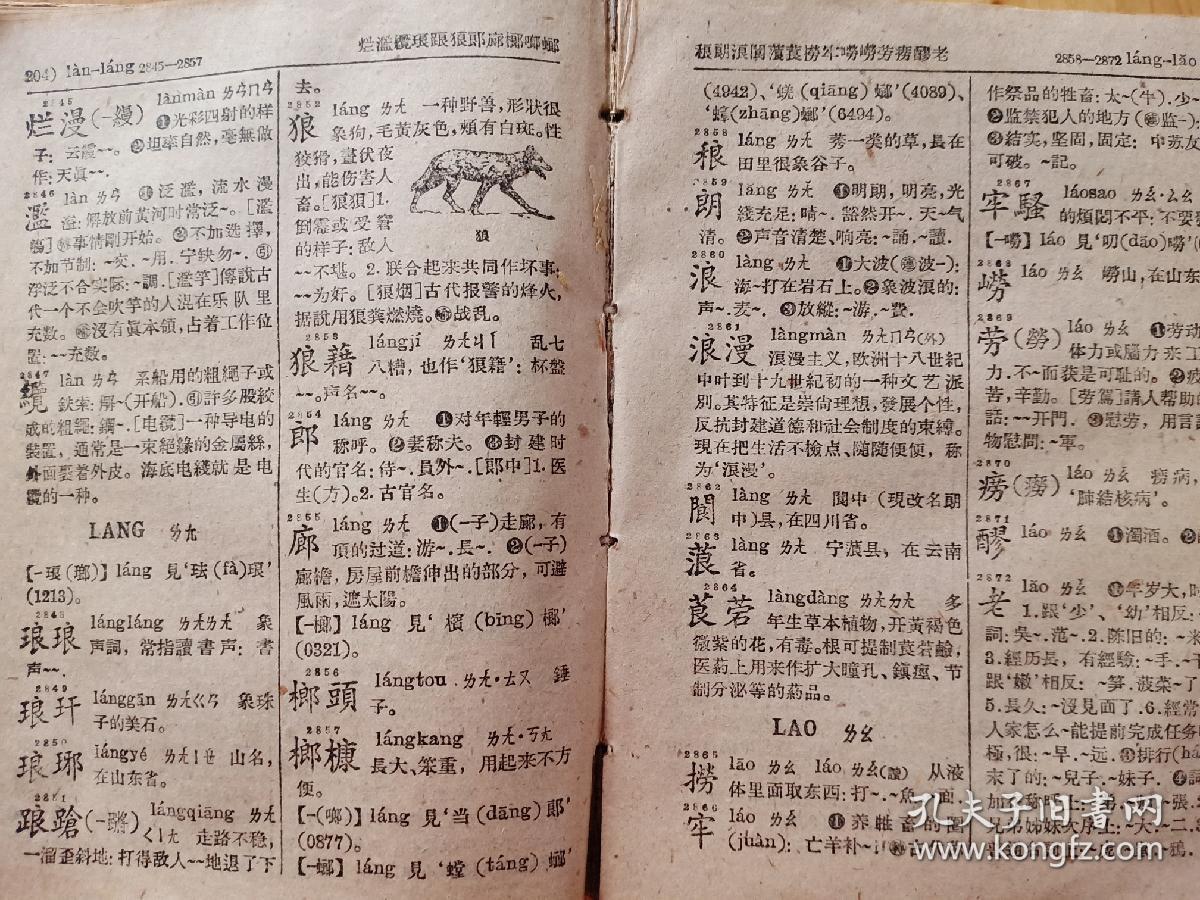 204) làn-láng 2845—2857
烂滥纜琅踉狼郎廊榔啷螂
2845
烂漫(—縵) lànmàn ㄌㄢㄇㄢ
❶光彩四射的样
子: 云霞~~。❷坦率自然,毫無做
作:天眞~~。
2846
滥 làn ㄌㄢ ❶泛滥,流水漫
溢:解放前黃河时常泛~。[滥
觴]事情剛开始。❷不加选擇,
不加节制:~交.~用.宁缺勿~.
浮泛不合实际:~調.[滥竽]傳說古
代一个不会吹竽的人混在乐队里
充数。沒有眞本領,占着工作位
置:~~充数。
2847
纜 làn ㄌㄢ 系船用的粗繩子或
鉄索:解~(开船).許多股絞
成的粗繩:鋼~.[电纜]一种导电的
裝置,通常是一束絕緣的金屬絲,
外面裹着外皮。海底电綫就是电
纜的一种。
LANG ㄌㄤ
【—琅(瑯)】láng 見‘珐(fà)琅’
(1213).
2848
琅琅 lángláng ㄌㄤㄌㄤ 象
声詞,常指讀書声:書
声~~.
2849
琅玕 lánggān ㄌㄤㄍㄢ 象珠
子的美石。
2850
琅琊 lángyé ㄌㄤㄧㄝ 山名,
在山东省。
2851
踉蹌(—蹡) lángqiāng ㄌㄤ
ㄑㄧㄤ 走路不稳,
一溜歪斜地:打得敌人~~地退了下
去。
2852
狼 láng ㄌㄤ 一种野兽,形狀很
象狗,毛黃灰色,頰有白斑。性
狡猾,晝伏夜
出,能伤害人
畜。[狼狽]1.
倒霉或受窘
的样子:敌人
~~不堪。2.联合起来共同作坏事:
~~为奸。[狼烟]古代报警的烽火,
据說用狼粪燃燒。战乱。
狼
2853
狼藉 lángjí ㄌㄤㄐㄧ 乱七
八糟,也作‘狼籍’:杯盤
~~.声名~~.
2854
郎 láng ㄌㄤ ❶对年輕男子的
称呼。❷妻称夫。❸封建时
代的官名:侍~.員外~.[郎中]1.医
生(方).2.古官名。
2855
廊 láng ㄌㄤ ❶(—子)走廊,有
頂的过道:游~.長~. ❷(—子)
廊檐,房屋前檐伸出的部分,可避
風雨,遮太陽。
【—榔】láng 見‘檳(bīng)榔’
(0321).
2856
榔頭 lángtou ㄌㄤ·ㄊㄡ 錘
子。
2857
榔槺 lángkang ㄌㄤ·ㄎㄤ
長大、笨重,用起来不方
便。
【—(啷)】láng 見‘当(dāng)郎’
(0877).
【—螂】láng 見‘螳(táng)螂’
稂朗浪閬蒗莨撈牢嘮嶗劳癆醪老
2858—2872 láng-lǎo
(4942)、‘蜣(qiāng)螂’(4089)、
‘蟑(zhāng)螂’(6494).
2858
稂 láng ㄌㄤ 莠一类的草,長在
田里很象谷子。
2859
朗 lǎng ㄌㄤ ❶明朗,明亮,光
綫充足:晴~. 豁然开~. 天~气
清。❷声音清楚、响亮:~誦.~讀.
2860
浪 làng ㄌㄤ ❶大波(波—):
海~打在岩石上。❷象波浪的:
声~.麦~. ❸放縱:~游.~費.
2861
浪漫 làngmàn ㄌㄤㄇㄢ(外)
浪漫主义,欧洲十八世紀
中叶到十九世紀初的一种文艺派
別。其特征是崇尙理想,發展个性,
反抗封建道德和社会制度的束縛。
現在把生活不檢点、隨隨便便,称
为‘浪漫’。
2862
閬 làng ㄌㄤ 閬中(現改名閬
中)县,在四川省。
2863
蒗 làng ㄌㄤ 宁蒗县,在云南
省。
2864
莨菪 làngdàng ㄌㄤㄉㄤ 多
年生草本植物,开黃褐色
微紫的花,有毒。根可提制莨菪鹼,
医药上用来作扩大瞳孔、鎮痙、节
制分泌等的药品。
LAO ㄌㄠ
2865
撈 lāo ㄌㄠ láo ㄌㄠ(讀) 从液
体里面取东西:打~.~魚.
2866
牢 láo ㄌㄠ ❶养牲畜的圈
(juàn):亡羊补~.
作祭品的牲畜:太~(牛).少~
❷监禁犯人的地方(监—):
❸结实,坚固,固定:中苏友
可破。~記.
2867
牢騷 láosao ㄌㄠ·ㄙㄠ
的煩悶不平:不要
【—嘮】láo 見‘叨(dāo)嘮’(
2868
嶗 láo ㄌㄠ 嶗山,在山东
2869
劳(勞) láo ㄌㄠ ❶劳动
体力或腦力来工
力.不一而获是可耻的。❷
苦,辛勤。[劳駕]請人帮助的
話:~~开門.❸慰劳,用言
物慰問:~軍.
2870
癆(痨) láo ㄌㄠ 癆病,
‘肺結核病’。
2871
醪 láo ㄌㄠ ❶濁酒。❷
2872
老 lǎo ㄌㄠ ❶年岁大,时
1.跟‘少’、‘幼’相反:
詞:吳~.范~.2.陈旧的:~米
3.經历長,有經驗:~手.~
跟‘嫩’相反:~笋.菠菜~了
5.長久:~沒見面了.6.經常
人家怎么~能提前完成任务
極,很:~早.~远.排行(há
末了的:~兒子.~妹子.
兄弟姊妹次序上:~大.~二.
孔夫子旧書网
www.kongfz.com